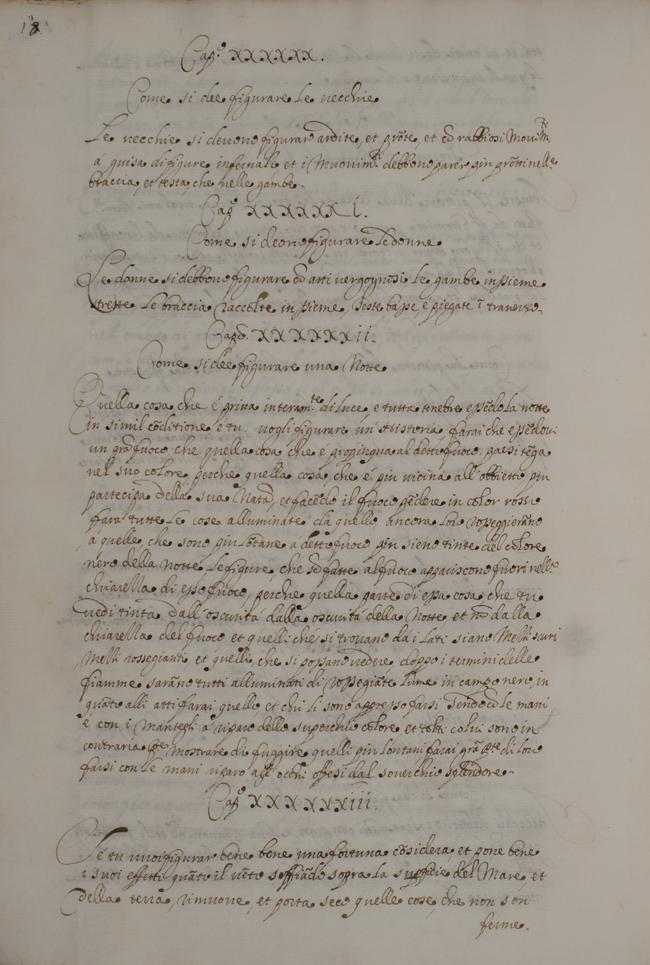 18
Cap.º XXXXXX.
Come si dee figurare le vecchie
Le vecchie si devono figurar ardite, et prõte, et cõ rabbiosi Movim.ti
a guisa di figure infernali, et i Muovim.ti debbono parer piu prõti nelle
braccia, et testa, che nelle gambe.
Cap.º XXXXXX i.
Come si deono figurare le donne
Le donne si debbono figurare cõ atti vergognosi le gambe inssieme
strette le braccia raccolte inssieme, teste basse e piegate ĩ traverso.
Capº. XXXXXXii.
Come si dee figurare una Notte
Quella cosa che é priva interam.te di luce e tutta tenebre essẽdo la notte
in simil cõditione e tu vogli figurare un'Historia, farai che essẽdovi
un grã fuoco che quella cosa che e propinqua al detto fuoco paresi tẽga
nel suo colore, perche quella cosa, che e piu vicina all'obbietto piu
partecipa della sua Natã, et facẽdo il fuoco pẽdere in color rosso
farai tutte le cose alluminate da quello ancora loro rosseggierãno
a quelle, che sono piu lõtane a detto fuoco piu sieno tinte del colore
nero della Notte. Le figure, che sõ fatte al fuoco appariscono fuori nella
chiarella di esso fuoco, perche quella parte di essa cosa che tu
vedi tinta dall'oscuritá dalla oscuritá della Notte et nõ dalla
chiarella del fuoco et quelli che si trovano da i lati siano Melli scuri
Melli rossegianti et quelli, che si possano vedere doppo i termini delle
fiamme sarãno tutti alluminati di rossegiãte lume in campo nero, in
quãto alli atti farai quelle et che li sono appresso farsi Tendẽdo le mani
e con i Mantegli a riparo dello superchio colore, et tolti colui sono in
contraria p.te Mostrare di fuggire quelli piu lontani farai grã p.te di loro
farsi con le mani riparo agl'occhi offesi dal soverchio splendore.
Cap.º XXXXXXiii.
Se tu vuoi figurar bene bene una fortuna cõsidera et pone bene
i suoi effetti quãto il vẽto soffiãdo sopra la supficie del Mare, et
della terra, rimuove, et porta seco quelle cose, che non son
ferme.